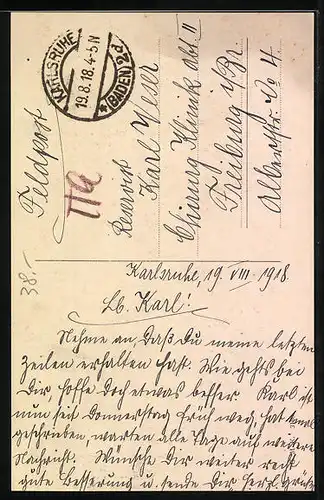 KARLSRUHE (BADEN) 2d
19.8.18.4-5N
Feldpost
IIa
Reservist
Karl Yeser
Chirurg Klinik Abt II
Freiburg i/Br.
Albertstr. No 4
38.-
Karlsruhe, 19. VIII. 1918.
Lb. Karl!
Nehme an, daß Du meine letzten
Zeilen erhalten hast. Wie gehts bei
Dir, hoffe doch etwas besser Karl ist
nun seit Donnerstag früh weg, hat
geschrieben, warten alle Tage auf weitere
Nachricht. Wünsche Dir weiter recht
gute Besserung u. sende Dir herzl. Grüße